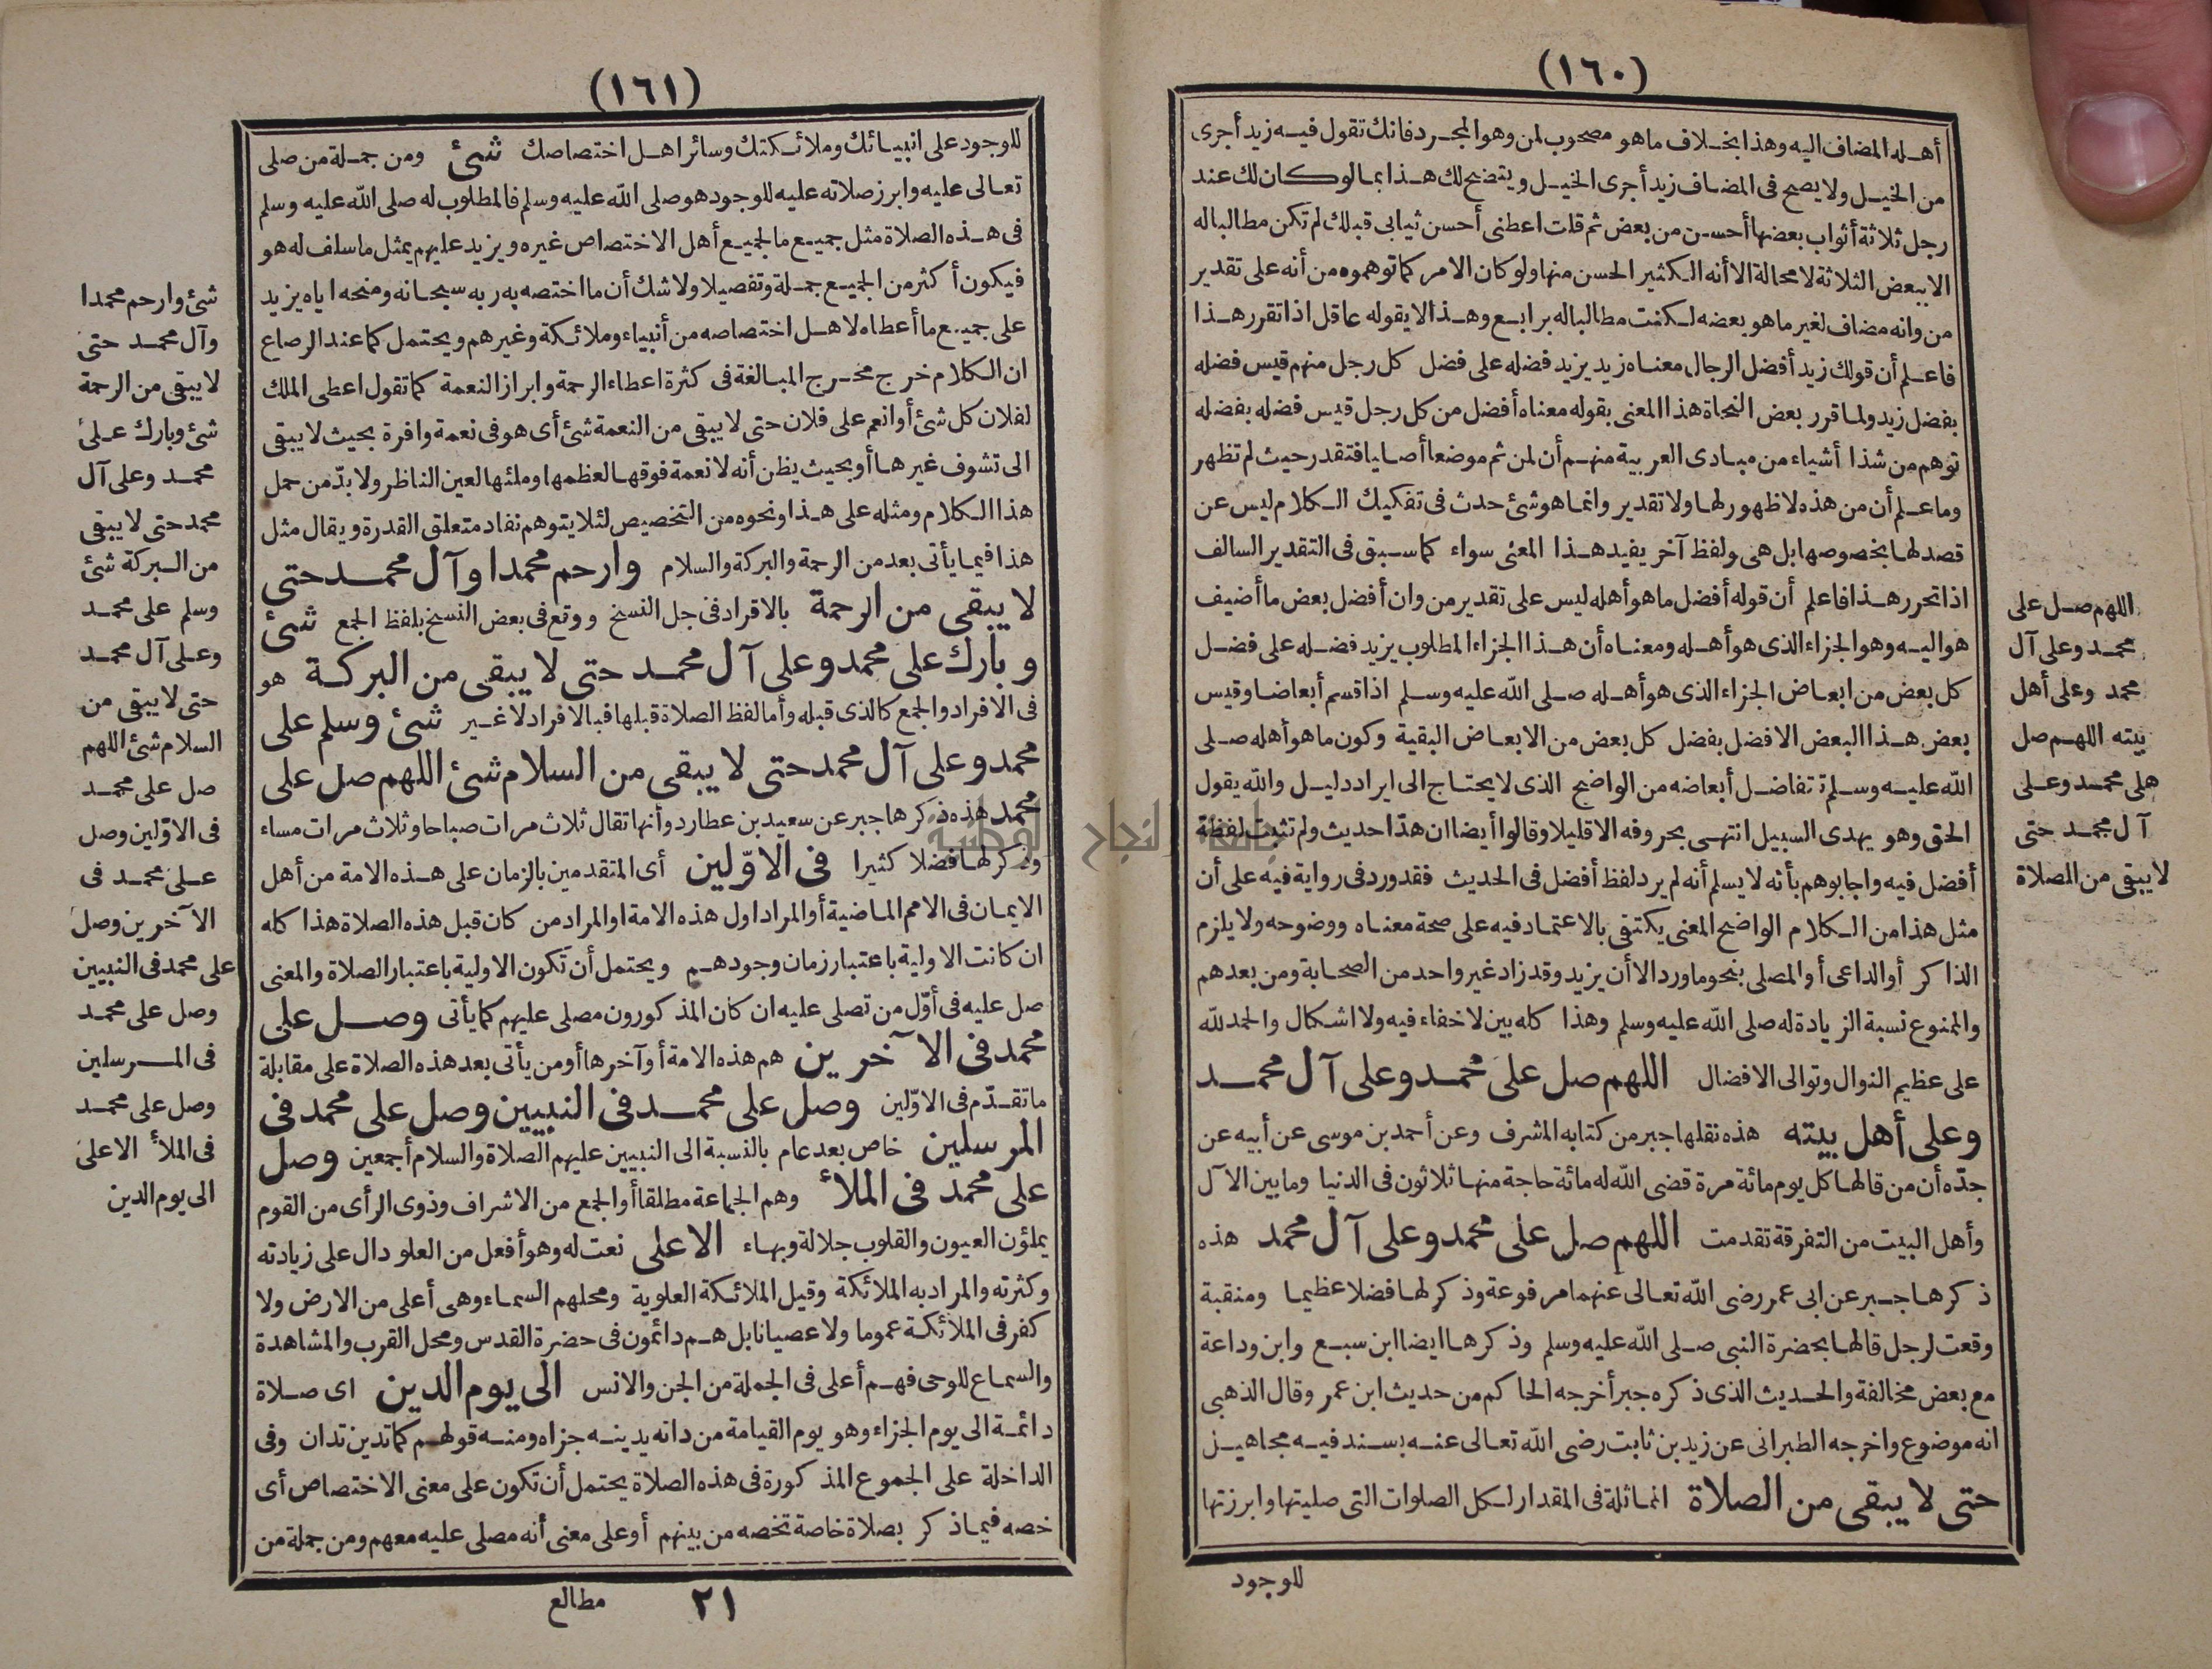 (١٦٠)
أهله المضاف اليه وهذا بخلاف ما هو مصحوب لمن وهو المجرد فانك تقول فيه زيد أجرى
من الخيل ولا يصح فى المضاف زيد أجرى الخيل ويتضح لك هذا بما لو كان لك عند
رجل ثلاثة أثواب بعضها أحسن من بعض ثم قلت اعطنى أحسن ثيابى قبلك لم تكن مطالبا له
الا ببعض الثلاثة لا محالة الا أنه الكثير الحسن منها ولو كان الامر كما توهموه من أنه على تقدير
من وانه مضاف لغير ما هو بعضه لكنت مطالبا له برابع وهذا لا يقوله عاقل اذا تقرر هذا
فاعلم أن قولك زيد أفضل الرجال معناه زيد يزيد فضله على فضل كل رجل منهم قيس فضله
بفضل زيد ولما قرر بعض النحاة هذا المعنى بقوله معناه أفضل من كل رجل قيس فضله بفضله
توهم من شذا أشياء من مبادى العربية منهم أن لمن ثم موضعا أصليا فتقدر حيث لم تظهر
وما علم أن من هذه لا ظهور لها ولا تقدير وانما هو شئ حدث فى تفكيك الكلام ليس عن
قصد لها بخصوصها بل هى ولفظ آخر يفيد هذا المعنى سواء كما سبق فى التقدير السالف
اذا تحرر هذا فاعلم أن قوله أفضل ما هو أهله ليس على تقدير من وان أفضل بعض ما أضيف
هو اليه وهو الجزاء الذى هو أهله ومعناه أن هذا الجزاء المطلوب يزيد فضله على فضل
كل بعض من ابعاض الجزاء الذى هو أهله صلى الله عليه وسلم اذا قسم أبعاضا وقيس
بعض هذا البعض الافضل بفضل كل بعض من الابعاض البقية وكون ما هو أهله صلى
الله عليه وسلم تتفاضل أبعاضه من الواضح الذى لا يحتاج الى ايراد دليل والله يقول
الحق وهو يهدى السبيل انتهى بحروفه الا قليلا وقالوا أيضا ان هذا حديث ولم تثبت لفظة
أفضل فيه واجابوهم بأنه لا يسلم أنه لم يرد لفظ أفضل فى الحديث فقد ورد فى رواية فيه على أن
مثل هذا من الكلام الواضح المعنى يكتفى بالاعتماد فيه على صحة معناه ووضوحه ولا يلزم
الذاكر أو الداعى أو المصلى بنحو ما ورد الا أن يزيد وقد زاد غير واحد من الصحابة ومن بعدهم
والممنوع نسبة الزيادة له صلى الله عليه وسلم وهذا كله بين لا خفاء فيه ولا اشكال والحمد لله
على عظيم النوال وتوالى الافضال اللهم صل على محمد وعلى آل محمد
وعلى أهل بيته هذه نقلها جبر من كتابه المشرف وعن أحمد بن موسى عن أبيه عن
جدّه أن من قالها كل يوم مائة مرة قضى الله له مائة حاجة منها ثلاثون فى الدنيا وما بين الآل
وأهل البيت من التفرقة تقدمت اللهم صل على محمد وعلى آل محمد هذه
ذكرها جبر عن ابى عمر رضى الله تعالى عنهما مرفوعة وذكر لها فضلا عظيما ومنقبة
وقعت لرجل قالها بحضرة النبى صلى الله عليه وسلم وذكرها ايضا ابن سبع وابن وداعة
مع بعض مخالفة والحديث الذى ذكره جبر أخرجه الحاكم من حديث ابن عمر وقال الذهبى
انه موضوع واخرجه الطبرانى عن زيد بن ثابت رضى الله تعالى عنه بسند فيه مجاهيل
حتى لا يبقى من الصلاة المماثلة فى المقدار لكل الصلوات التى صليتها وابرزتها
للوجود
اللهم صل على
محمد وعلى آل
محمد وعلى أهل
بيته اللهم صل
على محمد وعلى
آل محمد حتى
لا يبقى من الصلاة
(١٦١)
للوجود على انبيائك وملائكتك وسائر اهل اختصاصك شئ ومن جملة من صلى
تعالى عليه وابرز صلاته عليه للوجود هو صلى الله عليه وسلم فالمطلوب له صلى الله عليه وسلم
فى هذه الصلاة مثل جميع ما لجميع أهل الاختصاص غيره ويزيد عليهم بمثل ما سلف له هو
فيكون أكثر من الجميع جملة وتفصيلا ولا شك أن ما اختصه به ربه سبحانه ومنحه اياه يزيد
على جميع ما أعطاه لاهل اختصاصه من أنبياء وملائكة وغيرهم ويحتمل كما عند الرصاع
ان الكلام خرج مخرج المبالغة فى كثرة اعطاء الرحمة وابراز النعمة كما تقول اعطى الملك
لفلان كل شئ أو انعم على فلان حتى لا يبقى من النعمة شئ أى هو فى نعمة وافرة بحيث لا يبقى
الى تشوف غيرها أو بحيث يظن أنه لا نعمة فوقها لعظمها وملئها لعين الناظر ولا بدّ من حمل
هذا الكلام ومثله على هذا ونحوه من التخصيص لئلا يتوهم نفاد متعلق القدرة ويقال مثل
هذا فيما يأتى بعد من الرحمة والبركة والسلام وارحم محمدا وآل محمد حتى
لا يبقى من الرحمة بالافراد فى جل النسخ ووقع فى بعض النسخ بلفظ الجمع شئ
وبارك على محمد وعلى آل محمد حتى لا يبقى من البركة هو
فى الافراد والجمع كالذى قبله وأما لفظ الصلاة قبلها فبالافراد لا غير شئ وسلم على
محمد وعلى آل محمد حتى لا يبقى من السلام شئ اللهم صل على
محمد هذه ذكرها جبر عن سعيد بن عطارد وأنها تقال ثلاث مرات صباحا وثلاث مرات مساء
وذكر لها فضلا كثيرا فى الاوّلين أى المتقدمين بالزمان على هذه الامة من أهل
الايمان فى الامم الماضية أو المراد اول هذه الامة او المراد من كان قبل هذه الصلاة هذا كله
ان كانت الاولية باعتبار زمان وجودهم ويحتمل أن تكون الاولية باعتبار الصلاة والمعنى
صل عليه فى أوّل من تصلى عليه ان كان المذكورون مصلى عليهم كما يأتى وصل على
محمد فى الآخرين هم هذه الامة أو آخرها أو من يأتى بعد هذه الصلاة على مقابلة
ما تقدّم فى الاوّلين وصل على محمد فى النبيين وصل على محمد فى
المرسلين خاص بعد عام بالنسبة الى النبيين عليهم الصلاة والسلام أجمعين وصل
على محمد فى الملأ وهم الجماعة مطلقا أو الجمع من الاشراف وذوى الرأى من القوم
يملؤن العيون والقلوب جلالة وبهاء الاعلى نعت له وهو أفعل من العلو دال على زيادته
وكثرته والمراد به الملائكة وقيل الملائكة العلوية ومحلهم السماء وهى أعلى من الارض ولا
كفر فى الملائكة عموما ولا عصيانا بل هم دائمون فى حضرة القدس ومحل القرب والمشاهدة
والسماع للوحى فهم أعلى فى الجملة من الجن والانس الى يوم الدين اى صلاة
دائمة الى يوم الجزاء وهو يوم القيامة من دانه يدينه جزاه ومنه قولهم كما تدين تدان وفى
الداخلة على الجموع المذكورة فى هذه الصلاة يحتمل أن تكون على معنى الاختصاص أى
خصه فيما ذكر بصلاة خاصة تخصه من بينهم أو على معنى أنه مصلى عليه معهم ومن جملة من
٢١ مطالع
شئ وارحم محمدا
وآل محمد حتى
لا يبقى من الرحمة
شئ وبارك على
محمد وعلى آل
محمد حتى لا يبقى
من البركة شئ
وسلم على محمد
وعلى آل محمد
حتى لا يبقى من
السلام شئ اللهم
صل على محمد
فى الاوّلين وصل
على محمد فى
الآخرين وصل
على محمد فى النبيين
وصل على محمد
فى المرسلين
وصل على محمد
فى الملأ الاعلى
الى يوم الدين
جامعة النجاح الوطنية